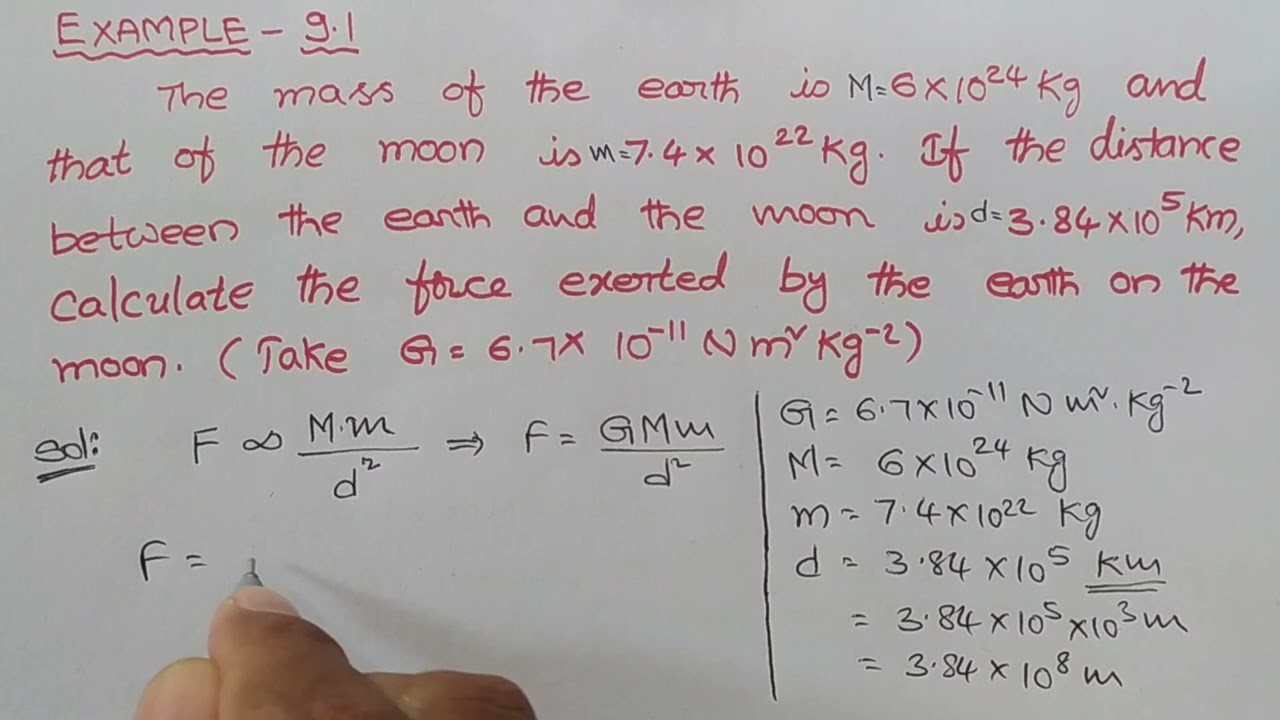 EXAMPLE - 9.1
The mass of the earth is M=6×10²⁴ Kg and
that of the moon is m=7.4×10²² Kg. If the distance
between the earth and the moon is d=3.84×10⁵ Km,
calculate the force exerted by the earth on the
moon. (Take G = 6.7× 10⁻¹¹ N m² Kg⁻²)
Sol: F ∝ M.m/d² ⇒ F = GMm/d²
F =
G = 6.7×10⁻¹¹ N m². Kg⁻²
M = 6×10²⁴ Kg
m = 7.4×10²² Kg
d = 3.84×10⁵ Km
= 3.84×10⁵×10³ m
= 3.84×10⁸ m